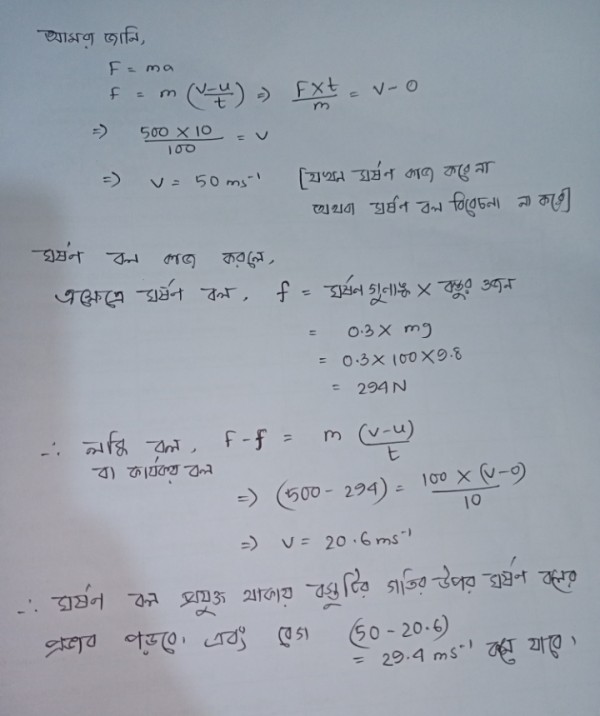 আমরা জানি,
F = ma
f = m (v-u/t) => F×t/m = v - 0
=> 500 × 10/100 = v
=> v = 50 ms⁻¹ [যখন ঘর্ষন কাজ করে না
অথবা ঘর্ষন বল বিবেচনা না করে]
ঘর্ষন বল কাজ করলে,
এক্ষেত্রে ঘর্ষন বল, f = ঘর্ষন গুনাঙ্ক × বস্তুর ওজন
= 0.3 × mg
= 0.3 × 100 × 9.8
= 294 N
∴ লব্ধি বল, F - f = m (v-u)/t
বা কার্যকর বল
=> (500 - 294) = 100 × (v-0)/10
=> v = 20.6 ms⁻¹
∴ ঘর্ষন বল প্রযুক্ত থাকায় বস্তুটির গতির উপর ঘর্ষন বলের
প্রভাব পড়বে। এবং বেগ (50 - 20.6)
= 29.4 ms⁻¹ কমে যাবে।